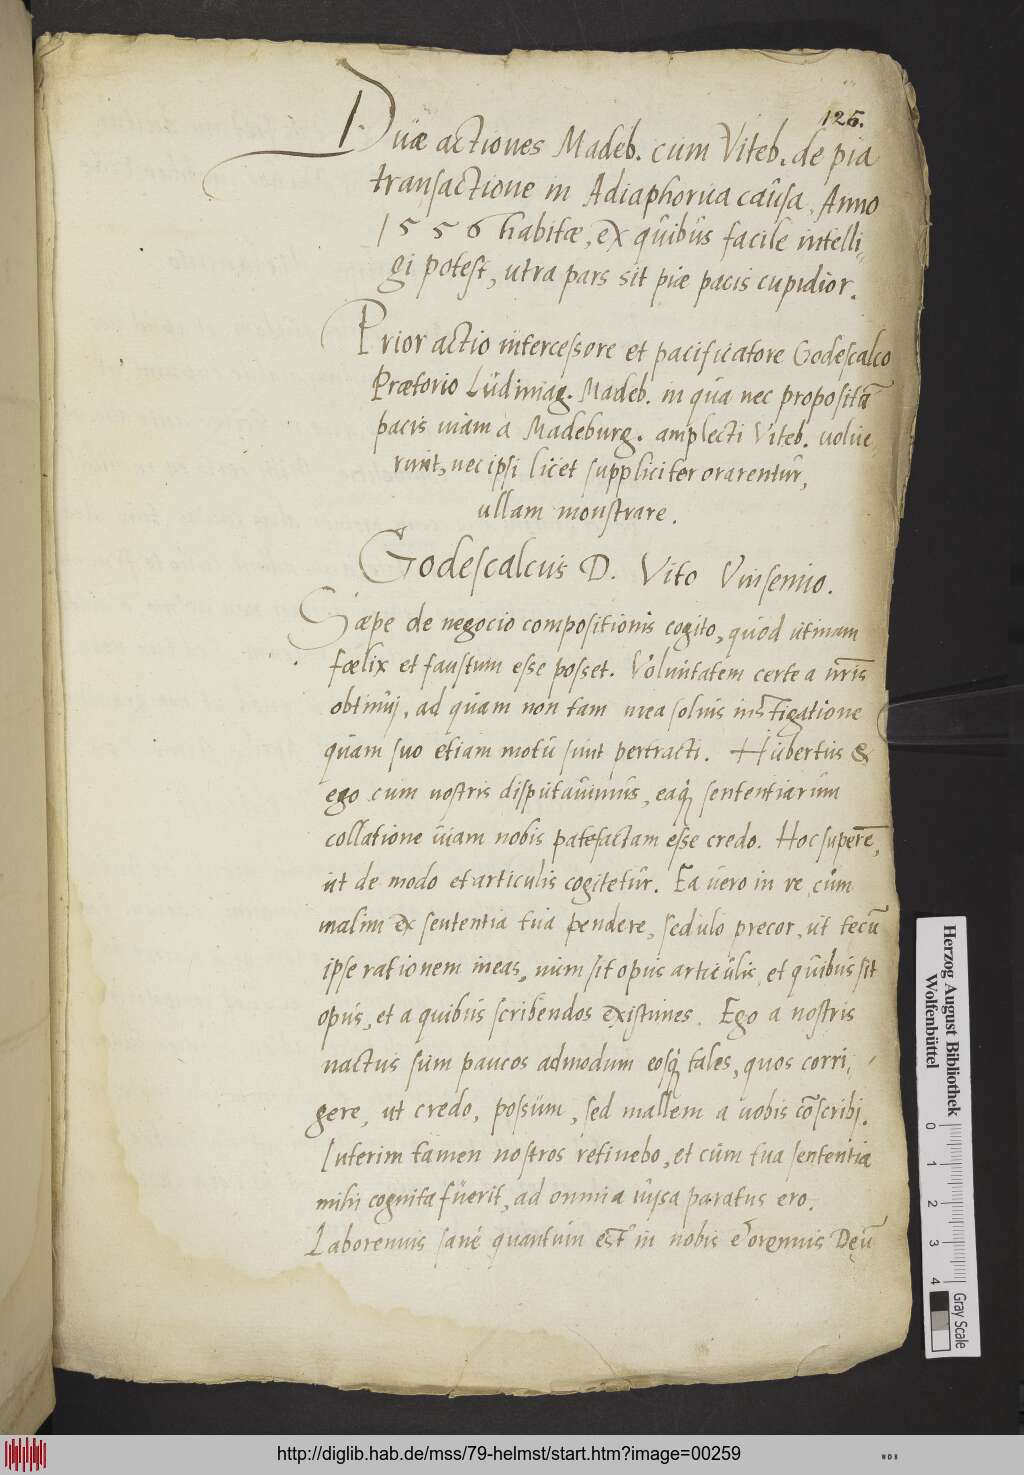 125.
Duæ actiones Madeb. cum Viteb. de pia
transactione in Adiaphorica causa, Anno
1556 habitæ, ex quibus facile intelli-
gi potest, utra pars sit piæ pacis cupidior.
Prior actio intercessore et pacificatore Godescalco
Prætorio Ludimag. Madeb. in qua nec propositā
pacis viam a Madeburg. amplecti Viteb. volue
runt, nec ipsi licet suppliciter orarentur,
ullam monstrare.
Godescalcus D. Vito Vinsemio.
Sæpe de negocio compositionis cogito, quod utinam
fœlix et faustum esse posset. Voluntatem certe a nr̄is
obtinui, ad quam non tam mea solius instigatione
quam suo etiam motu sunt pertracti. Hubertus &
ego cum nostris disputavimus, eaq; sententiarum
collatione viam nobis patefactam esse credo. Hoc superē,
ut de modo et articulis cogitetur. Ea vero in re cum
malim ex sententia tua pendere, sedulo precor, ut tecū
ipse rationem ineas, num sit opus articulis, et quibus sit
opus, et a quibus scribendos existimes. Ego a nostris
nactus sum paucos admodum eosq; tales, quos corri-
gere, ut credo, possum, sed mallem a vobis cōscribi.
Interim tamen nostros retinebo, et cum tua sententia
mihi cognita fuerit, ad omnia iussa paratus ero.
Laboremus sane quantum est in nobis et oremus Deū
Herzog August Bibliothek
Wolfenbüttel
0 1 2 3 4
Gray Scale
http://diglib.hab.de/mss/79-helmst/start.htm?image=00259